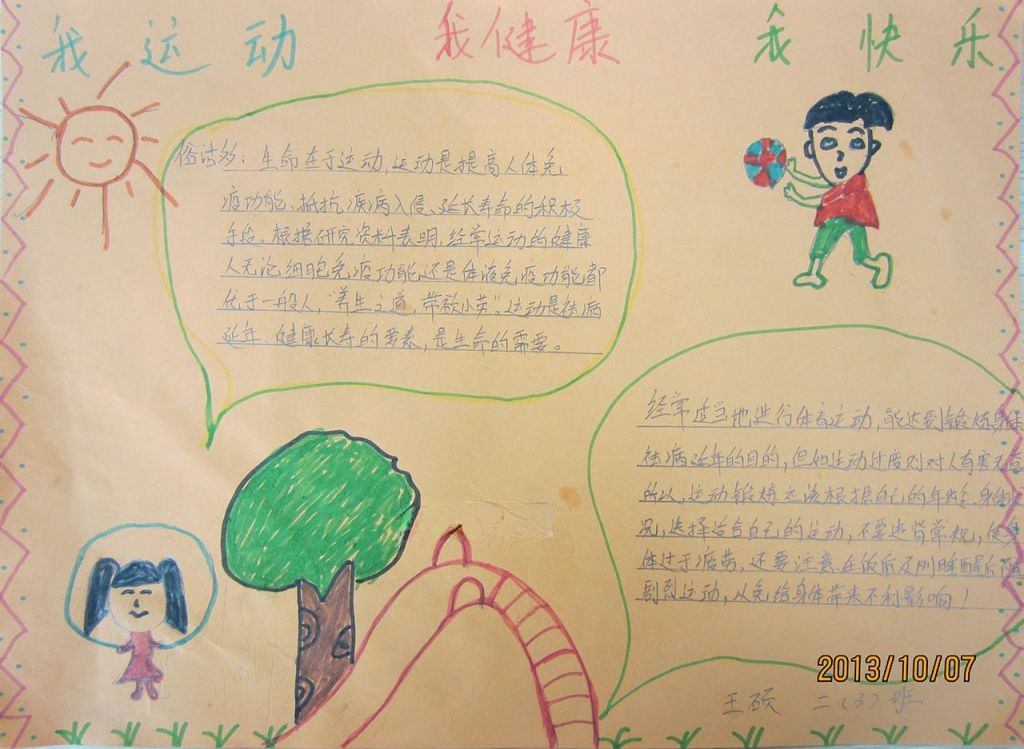 我 运 动 我 健 康 我 快 乐
俗话多:生命在于运动,运动是提高人体免
疫功能、抵抗疾病入侵、延长寿命的积极
手段。根据研究资料表明,经常运动的健康
人无论细胞免疫功能还是体液免疫功能都
优于一般人,"养生之道,带欲小劳",运动是祛病
延年、健康长寿的要素,是生命的需要。
经常适当地进行体育运动,能达到锻炼身体
祛病延年的目的,但如运动过度则对人有害无益
所以,运动锻炼应该根据自己的年龄、身体状
况,选择适合自己的运动,不要违背常规,使身
体过于疲劳,还要注意在饭后及刚睡醒后不宜
剧烈运动,以免给身体带来不利影响!
2013/10/07
王硕 二(3)班